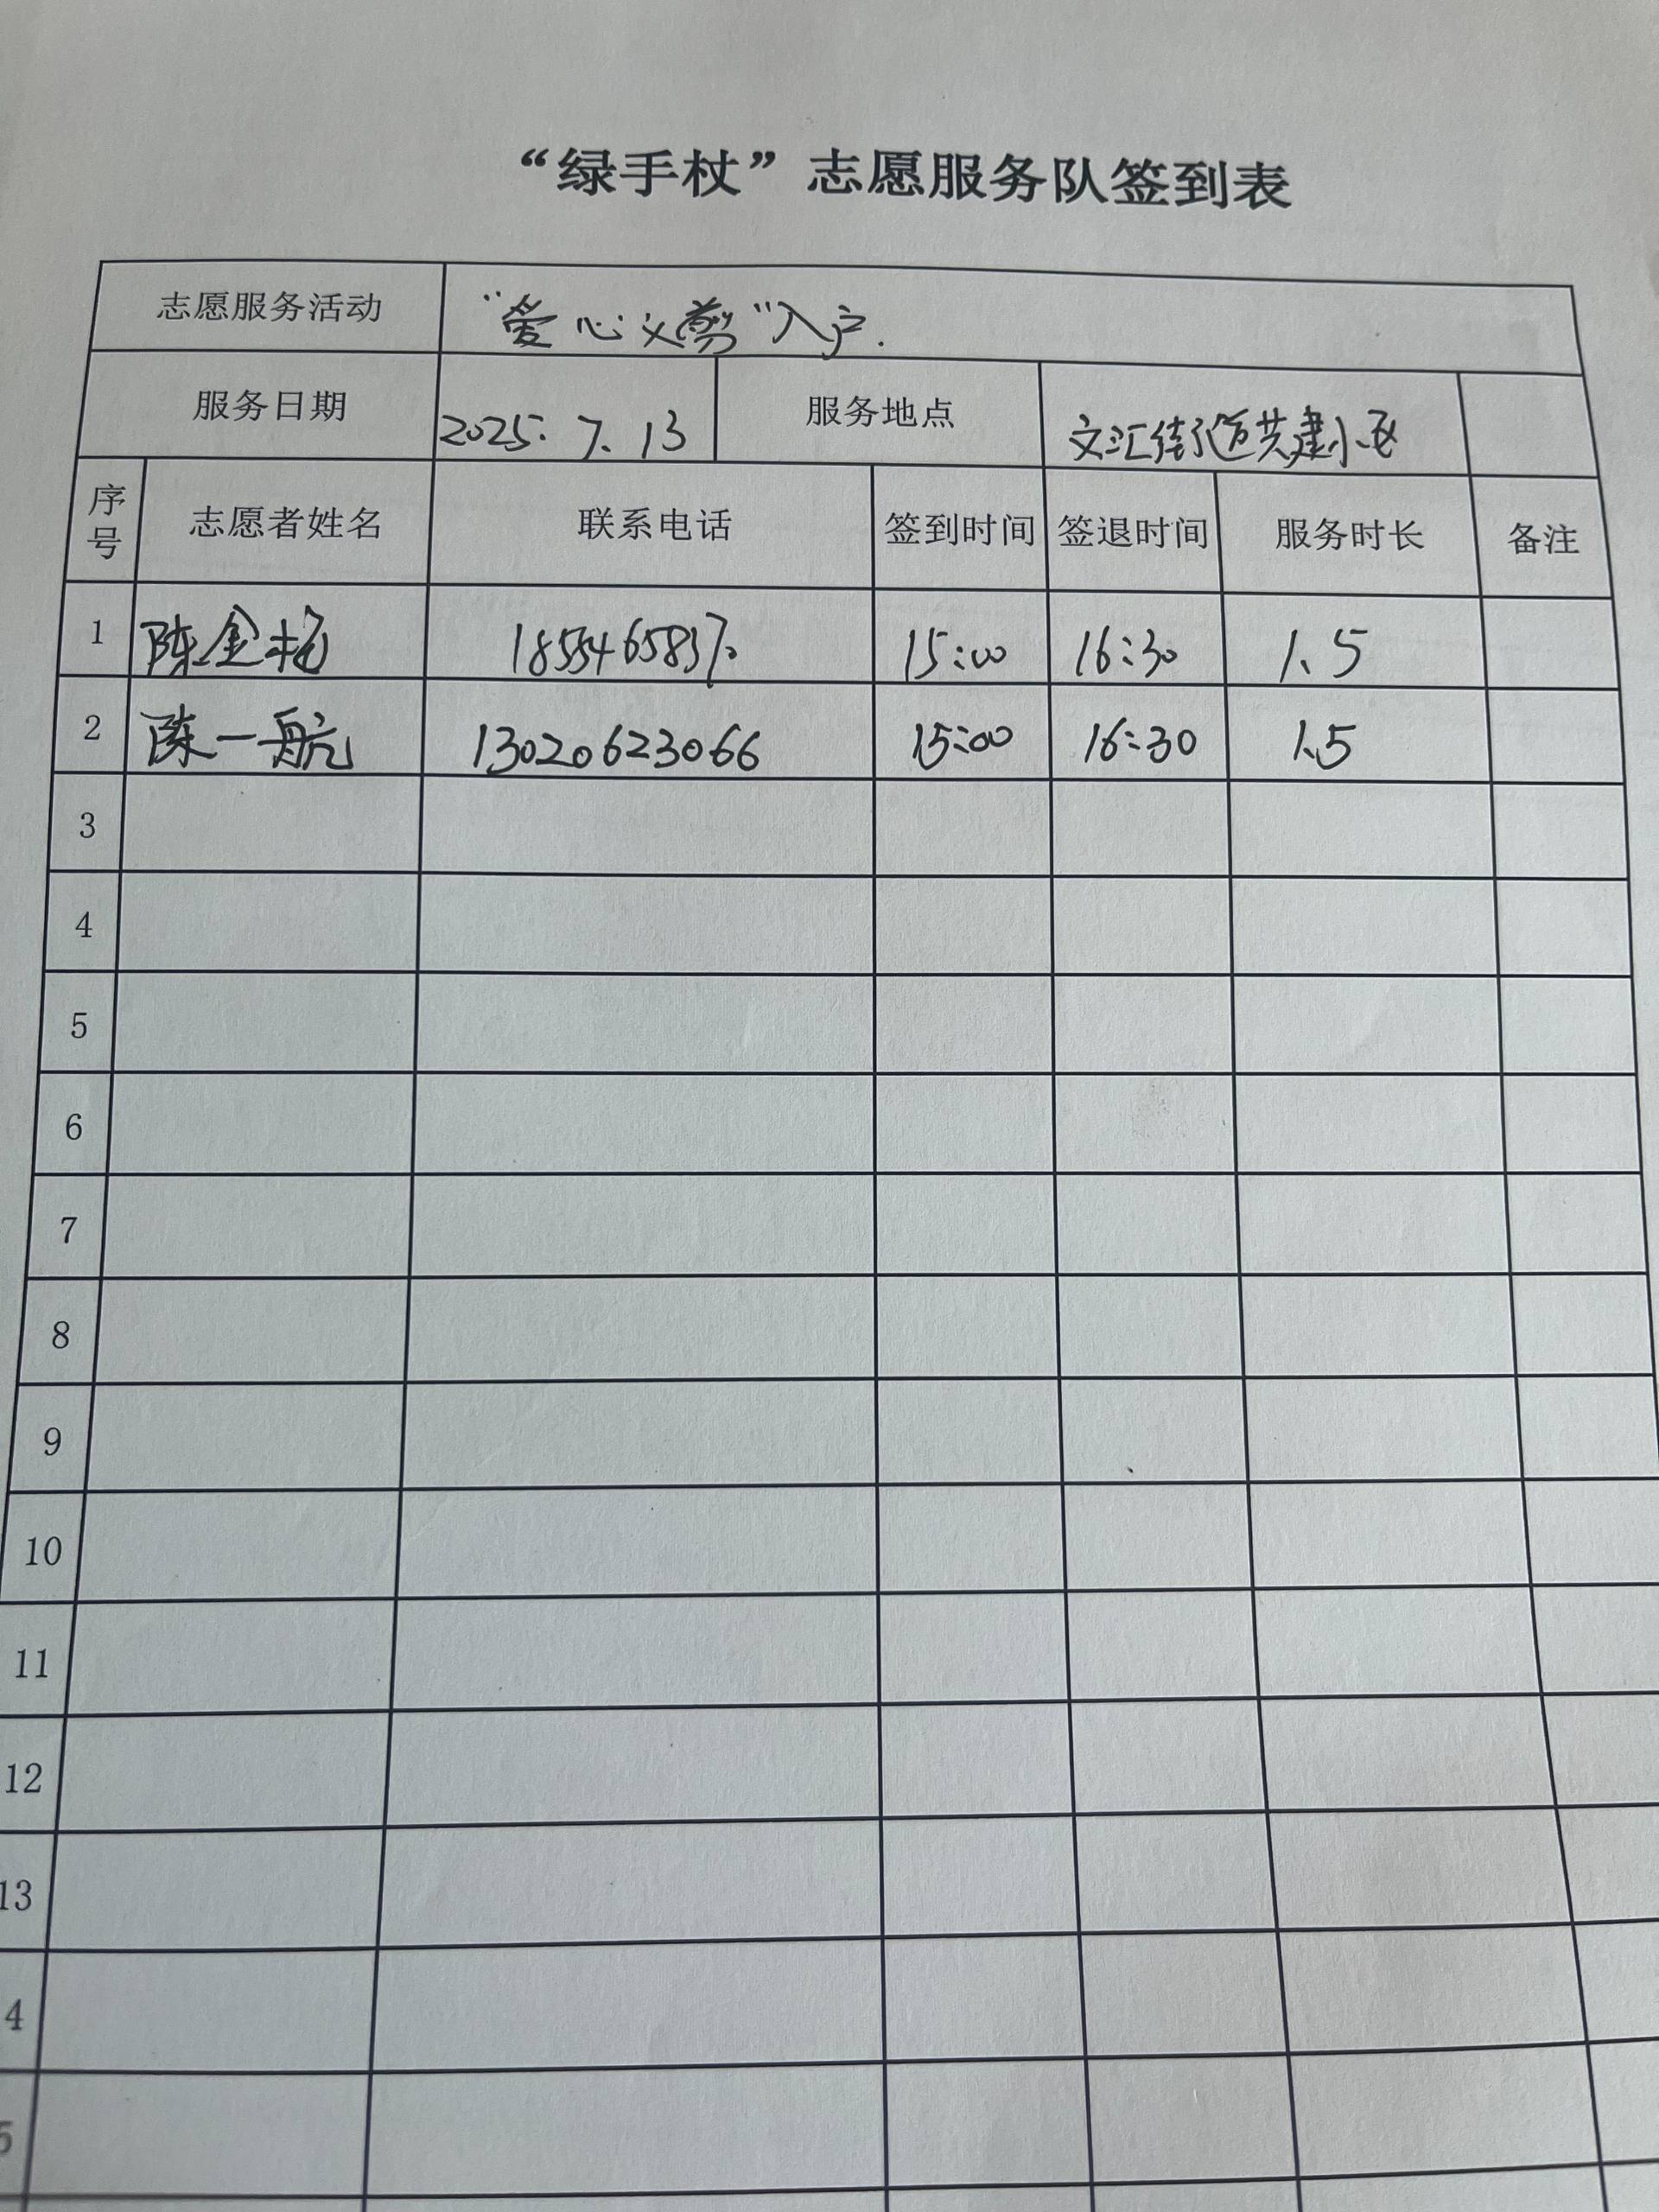 “绿手杖”志愿服务队签到表
志愿服务活动 “爱心义剪”入户.
服务日期 2025. 7. 13 服务地点 文汇街道共建小区
序号 志愿者姓名 联系电话 签到时间 签退时间 服务时长 备注
1 陈金 15:00 16:30 1.5
2 陈一航 13020623066 15:00 16:30 1.5
3
4
5
6
7
8
9
10
11
12
13
4
5